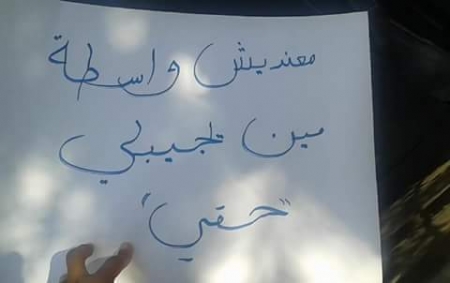 معنديش واسطة
مين يجيبلي
"حقي"